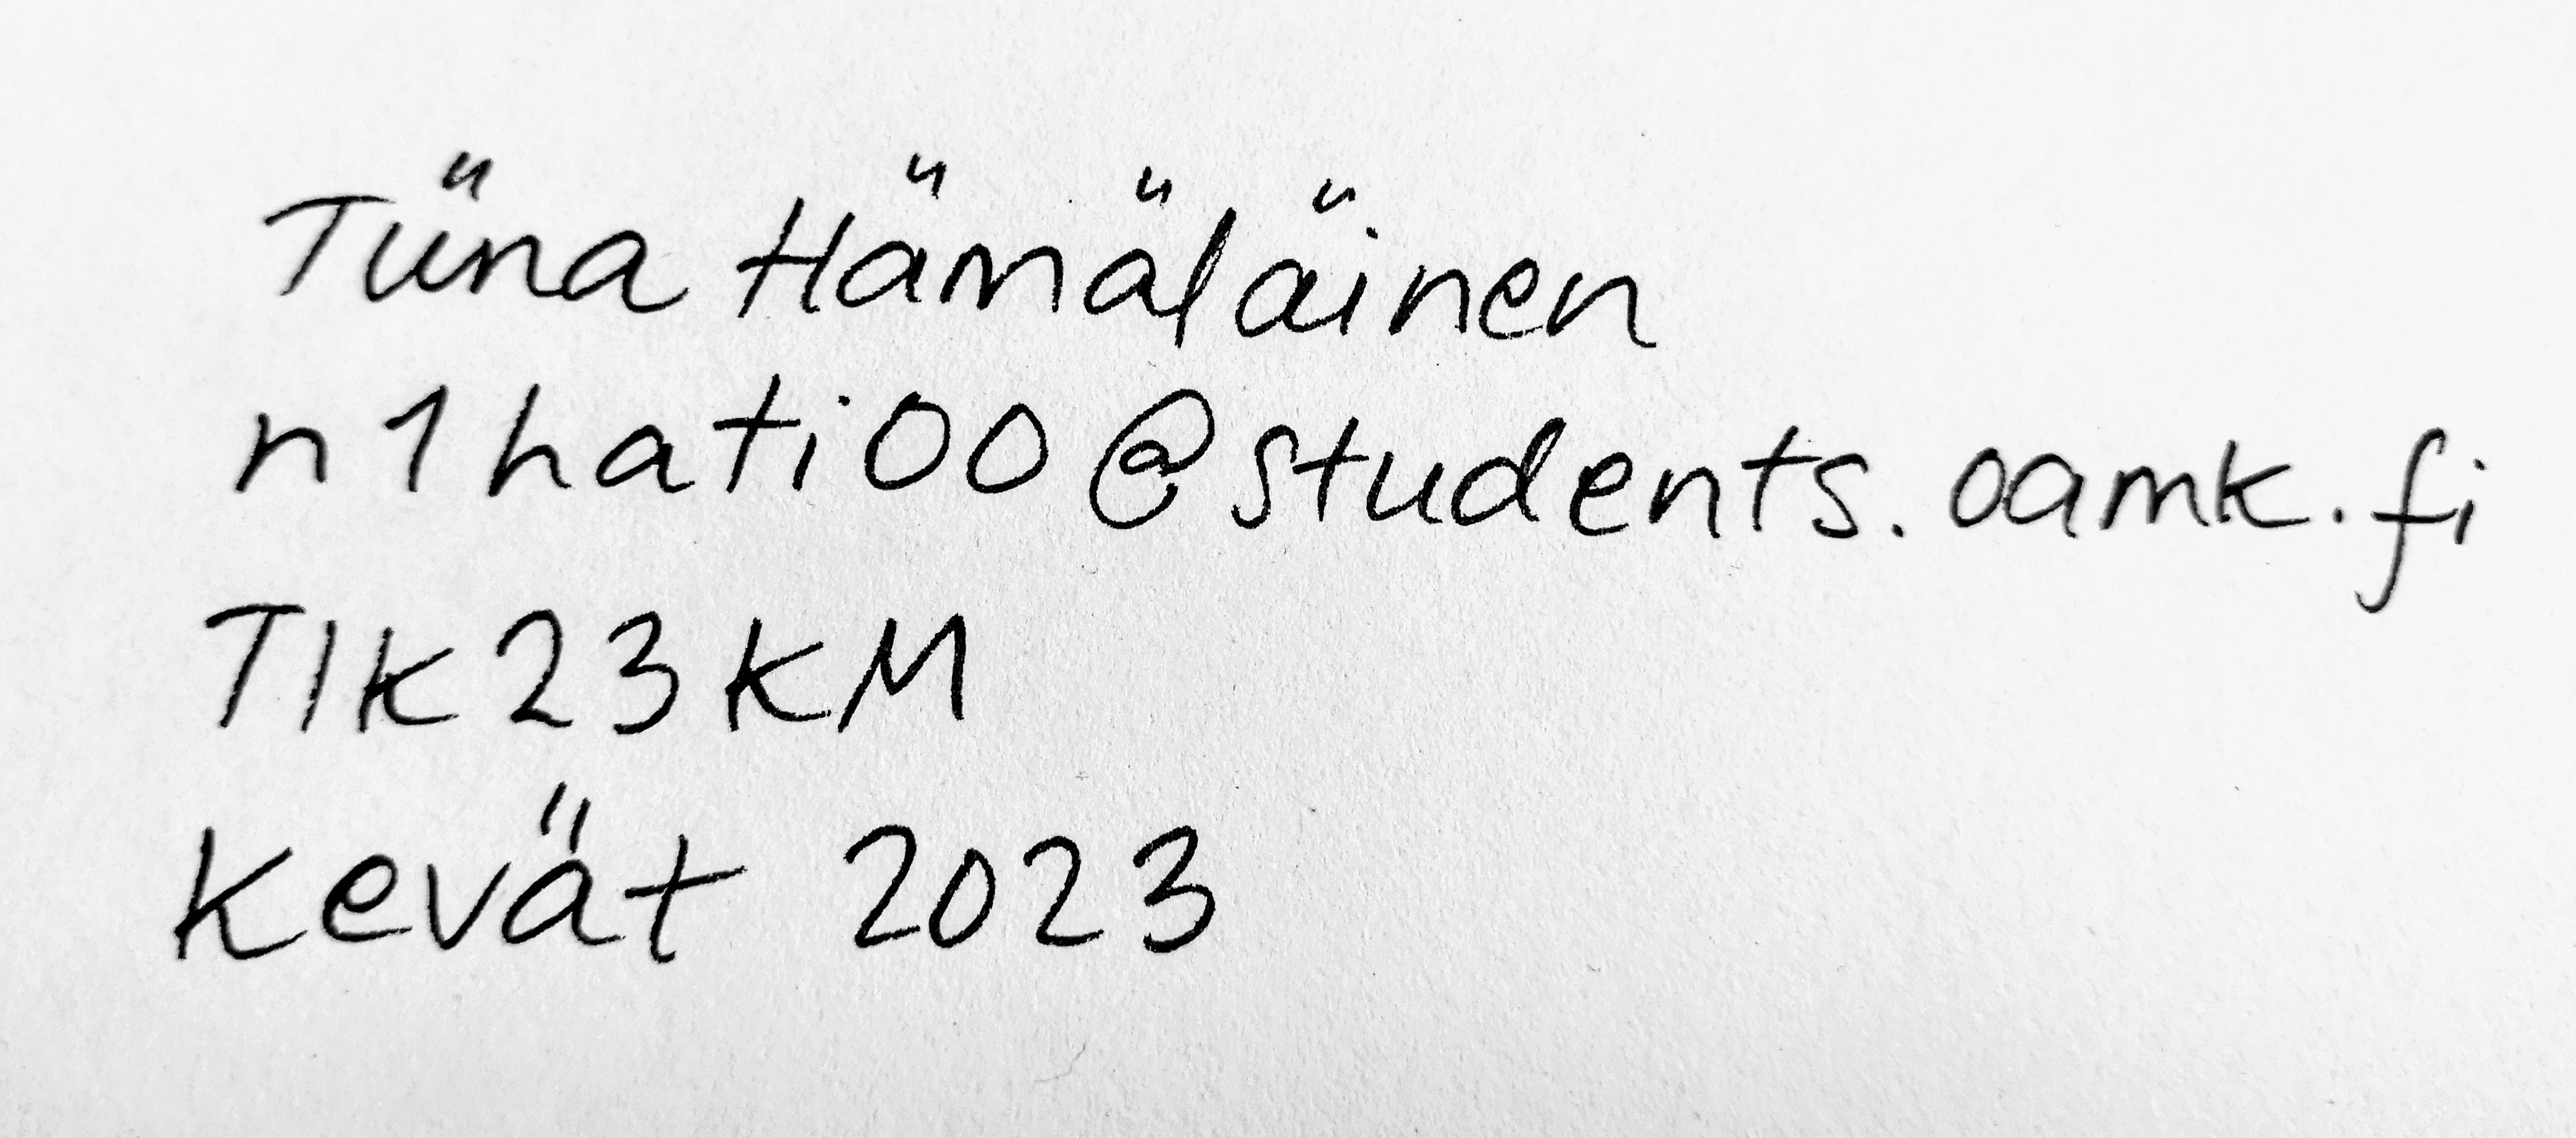 Tiina Hämäläinen
n1hati00@students.oamk.fi
TIK23KM
Kevät 2023